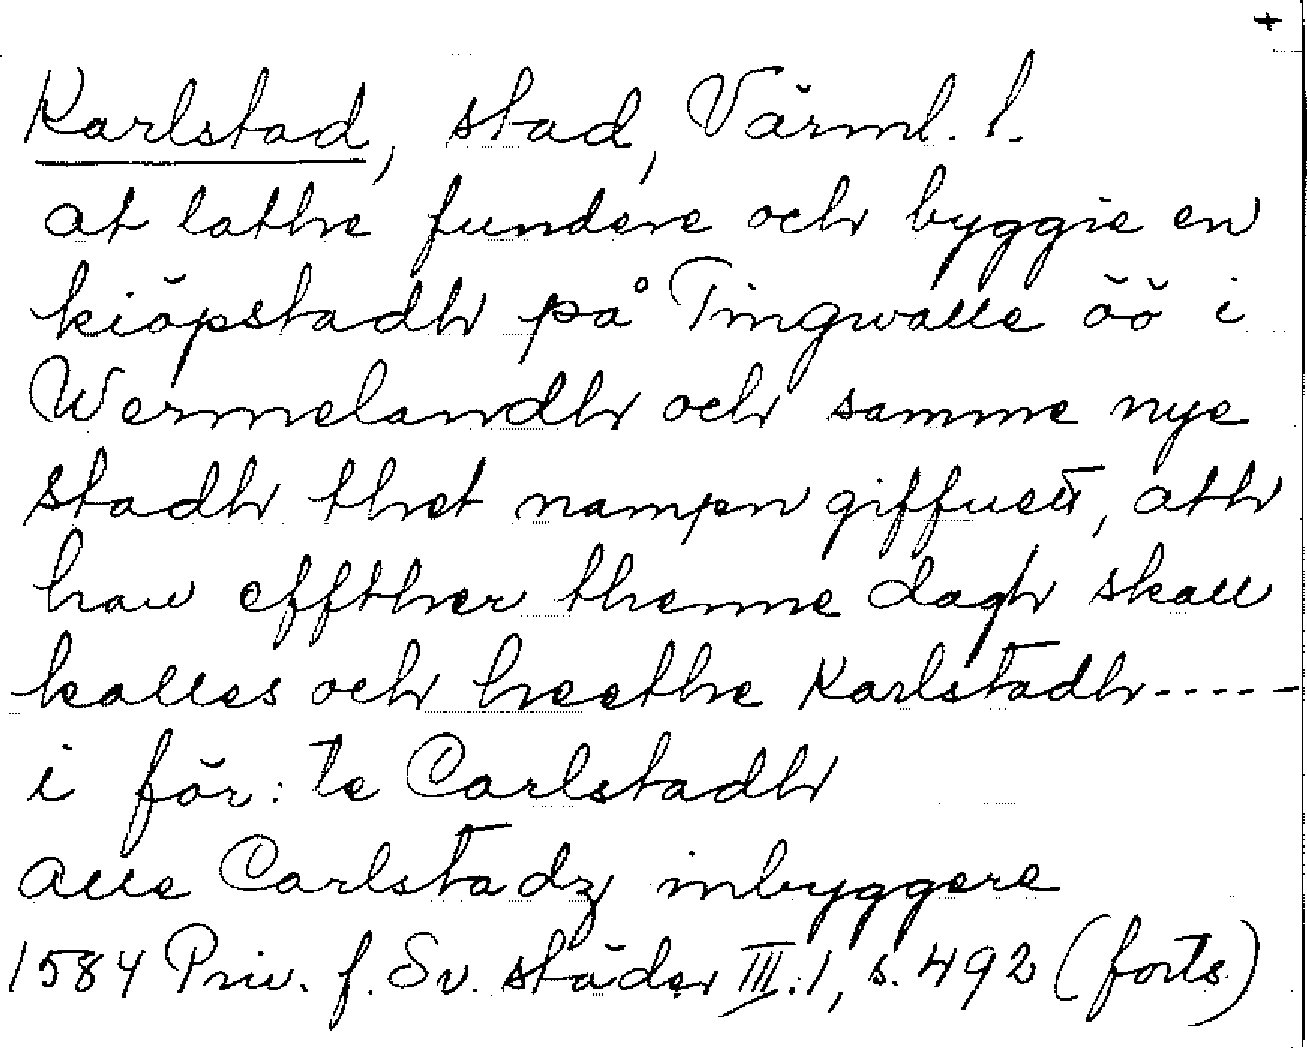 +
Karlstad, stad, Värml. l.
at lathe fundere och byggie en
kiöpstadh på Tingwalle öö i
Wermelandh och samme nye
stadh thet nampn giffuett, ath
han effther thenne dagh skall
kalles och heethe Karlstadh-----
i för:te Carlstadh
alle Carlstadz inbyggere
1584 Priv. f. Sv. städer III:1, s. 492 (forts)